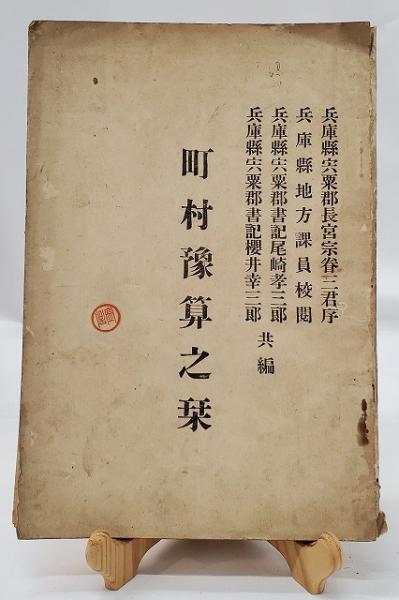 兵庫縣宍粟郡長宮宗眷三君序
兵庫縣地方課員校閲
兵庫縣宍粟郡書記尾崎孝三郎
兵庫縣宍粟郡書記櫻井幸三郎
共編
町村豫算之栞